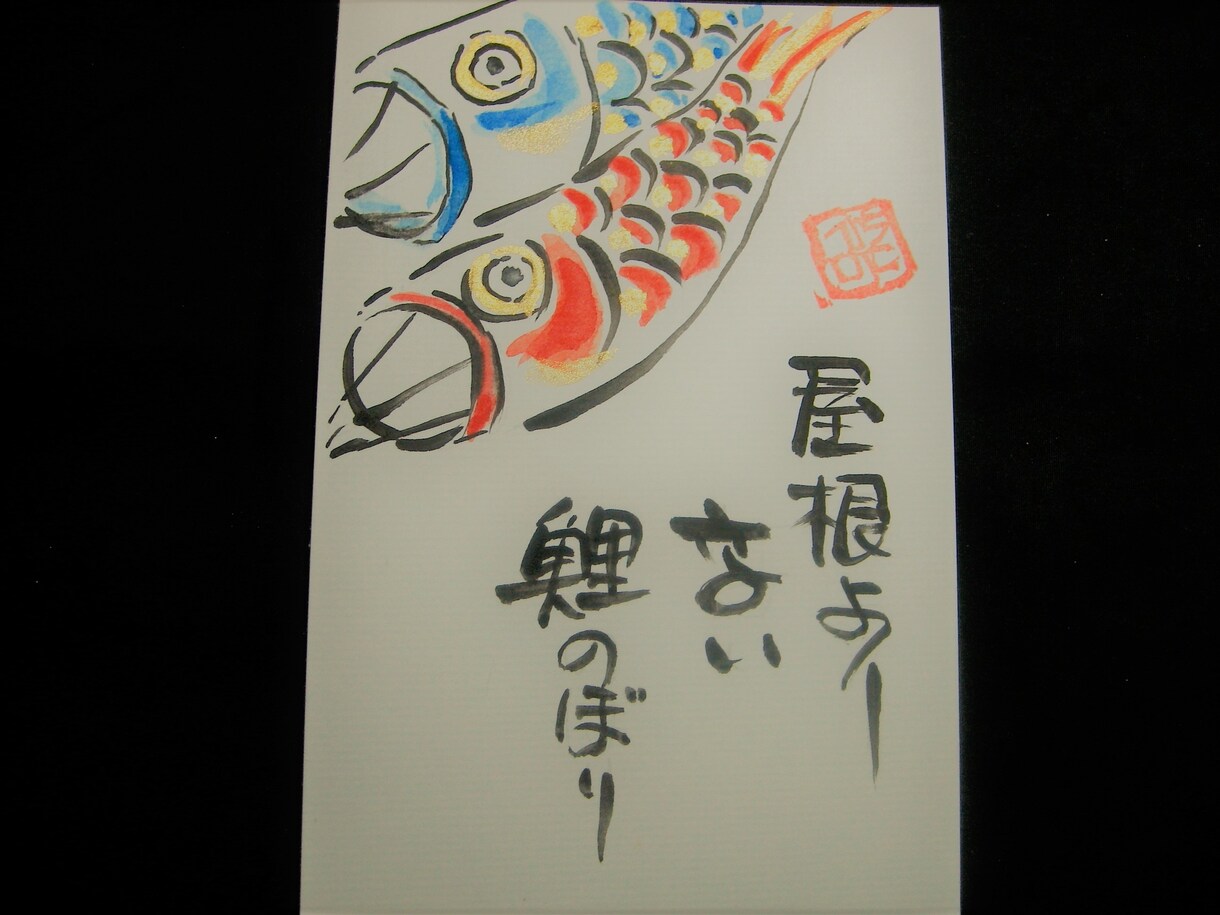 屋根より
高い
鯉のぼり